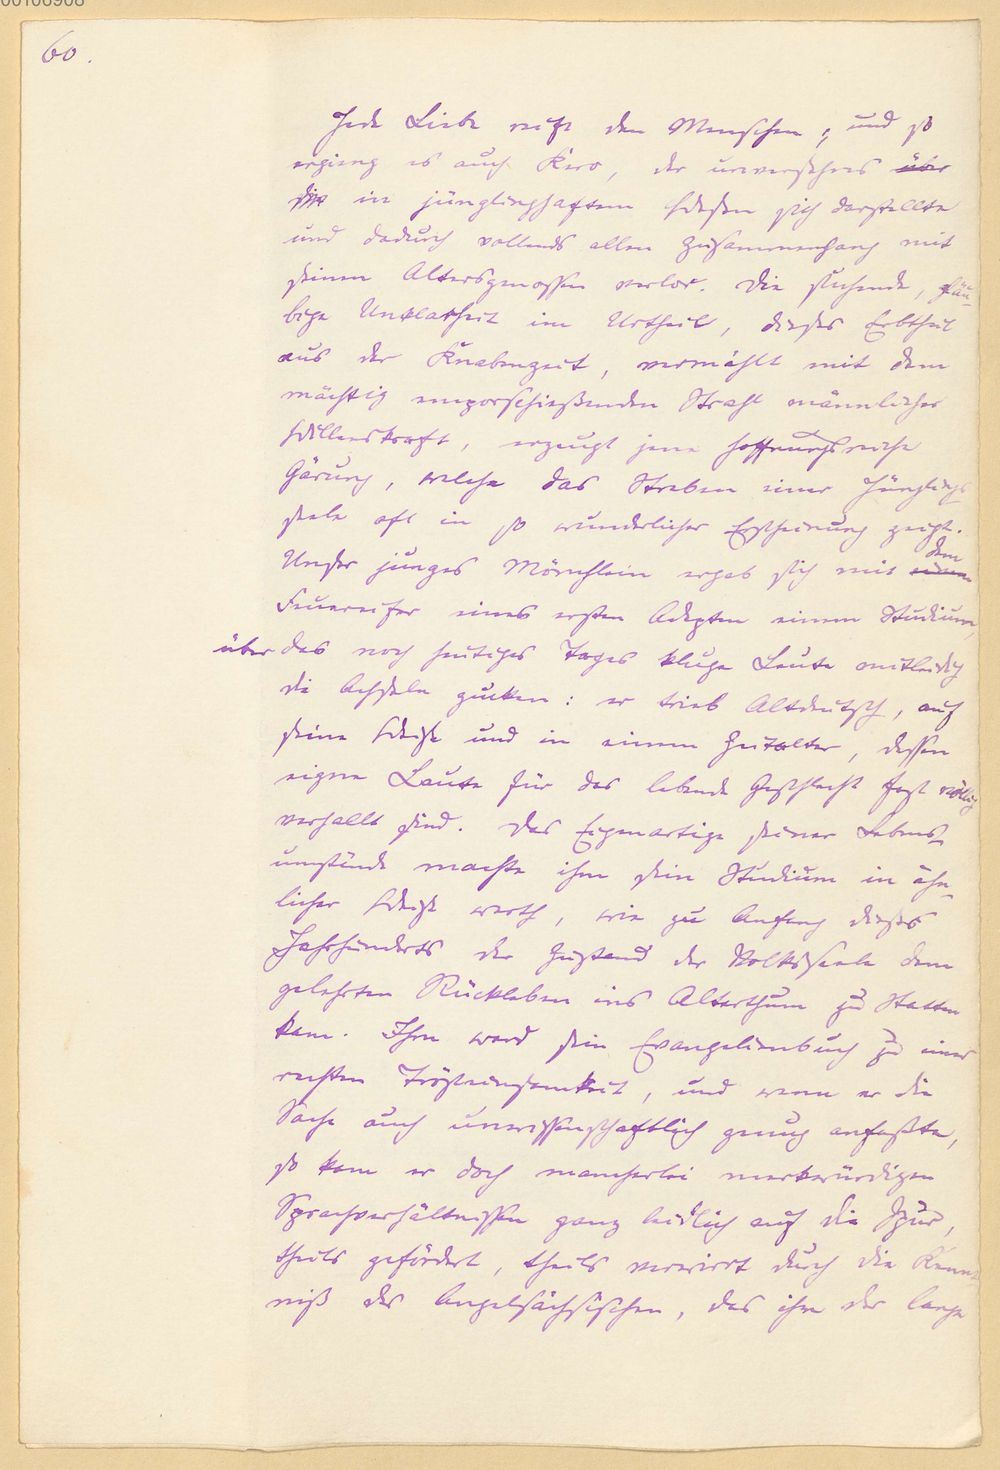 00106908
60.
Jede Liebe reift den Menschen, und so
ergieng es auch Kero, der unversehens über
die in jünglinghaftem Wesen sich darstellte
und dadurch vollends allen Zusammenhang mit
seinen Altersgenossen verlor. Die suchende,
Unklarheit im Urtheil, dieses Erbtheil
aus der Knabenzeit, vermählt mit dem
mächtig emporschießenden Strahl männlicher
Willenskraft, erzeugt jene hoffnungsreiche
Gärung, welche das Streben einer Jünglings
seele oft in so wunderlicher Erscheinung zeigt.
dem
Unser junges Mönchlein ergab sich mit einem
Feuereifer eines ersten Adepten einem Studium,
über das noch heutiges Tages kluge Leute mitleidig
die Achseln zucken: er trieb Altdeutsch, auf
seine Weise und in einem Zeitalter, dessen
eigne Laute für das lebende Geschlecht fast völlig
verhallt sind. Das Eigenartige seiner Lebens-
umstände machte ihm sein Studium in ähn-
licher Weise werth, wie zu Anfang dieses
Jahrhunderts der Zustand der Volksseele dem
gelehrten Rückleben ins Alterthum zu Statten
kam. Ihm ward sein Evangelienbuch zu einer
rechten Trösteinsamkeit, und wenn er die
Sache auch unwissenschaftlich genug anfaßte,
so kam er doch mancherlei merkwürdigen
Sprachverhältnissen ganz leidlich auf die Spur,
theils gefördert, theils verwirrt durch die Kennt
niß des Angelsächsischen, das ihm der lange